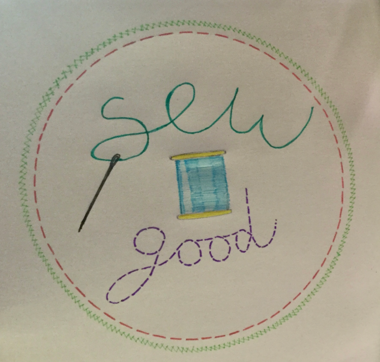 sew
good